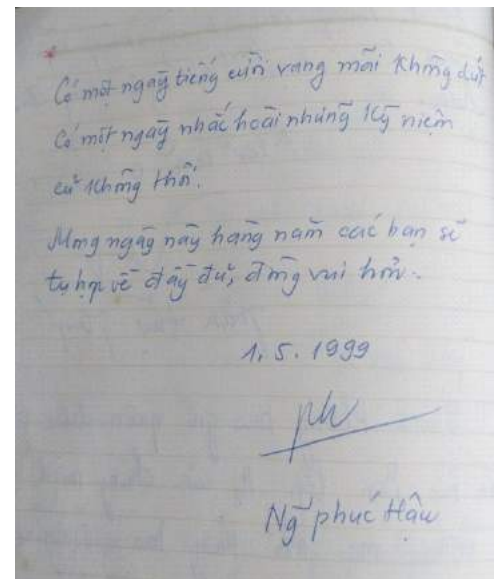 *
Có một ngày tiếng cười vang mãi không dứt
Có một ngày nhắc hoài những kỷ niệm
cứ không thôi.
Mong ngày này hàng năm các bạn sẽ
tụ họp về đầy đủ, đông vui hơn.
1.5.1999
Ng̃ phúc Hậu